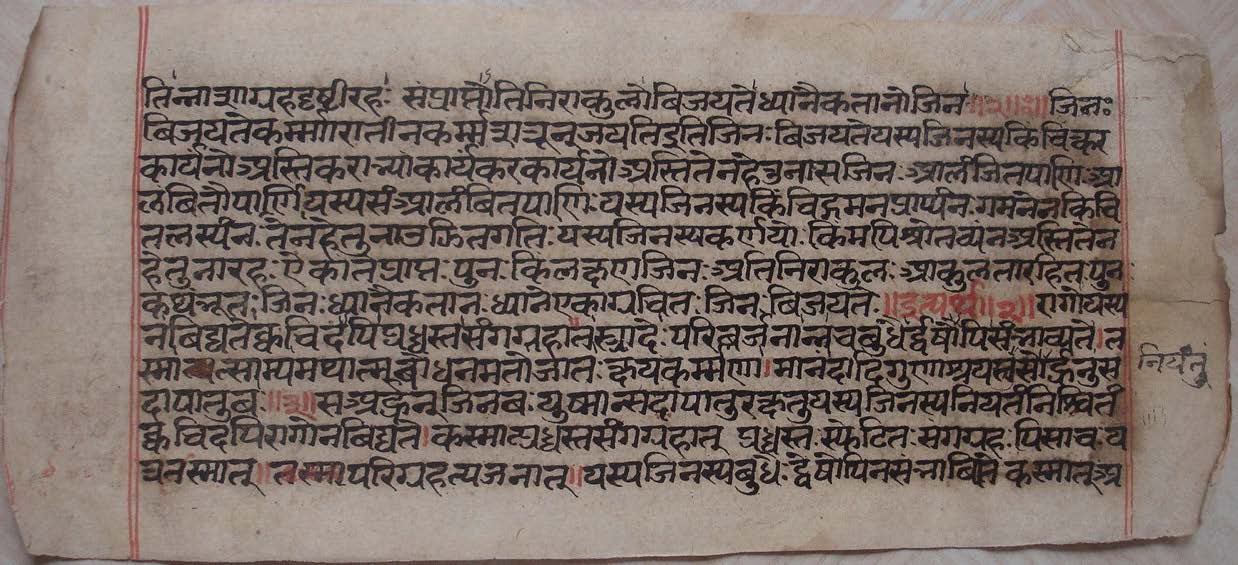 तिन्नाशाग्रहदृष्टीरहः संप्राप्तोतिनिराकुलोबिजयतेध्यानैकतानोजिनः ॥२॥ जिनः
बिजयतेकर्म्मारातीनकर्म्मशत्रूनूजयतिइतिजिनः बिजयतेयस्यजिनस्यकिंचित्कर
कार्यंनोअस्तिकराभ्योकार्यंकरकार्यंनोअस्तितेनहेतुनासजिनः आलंबितपाणिः आ
लंबितौपाणीयस्यसःआलंबितपाणिः यस्यजिनस्यकिंचिद्गमनप्राप्यंनः गमनेनकिंचि
तलभ्यंनः तेनहेतुनाउज्झितगतिः यस्यजिनस्यकर्णयोः किमपिश्रोतव्यंनअस्तितेन
हेतुनारहः ऐकांतप्राप्तः पुनः किंलक्षणजिनः अतिनिराकुलः आकुलतारहितः पुनः
कथंभूतः जिनः ध्यानैकतानः ध्यानेएकाग्रचितः जिनः बिजयते ॥इत्यर्थः॥२॥ रागोयस्य
नबिद्यतेक्वचिदपिप्रध्वस्तसंगग्रहात्अस्त्रादेः परिबर्जनान्नचबुधैर्द्वेषोपिसंभाव्यते। त
स्मात्साम्यमथात्मबोधनमतोजातः क्षयःकर्म्मणां। मानंदादिगुणाश्रयस्तुसोर्हन्स
दापातुबः ॥३॥ सअर्हनूजिनबः युष्मान्सदापातुरक्षतुयस्यजिनस्यनियतंनिश्चितं
क्वचिदपिरागोनबिद्यते। कस्मात्प्रध्वस्तसंगग्रहात् प्रध्वस्तः स्फेटितः संगग्रहः पिसाचः य
त्रतस्मात्॥ तस्मापरिग्रहत्यजनात्॥ यस्यजिनस्यबुधैः द्वेषोपिनसंभाबितः कस्मात्अ
नियंतुं